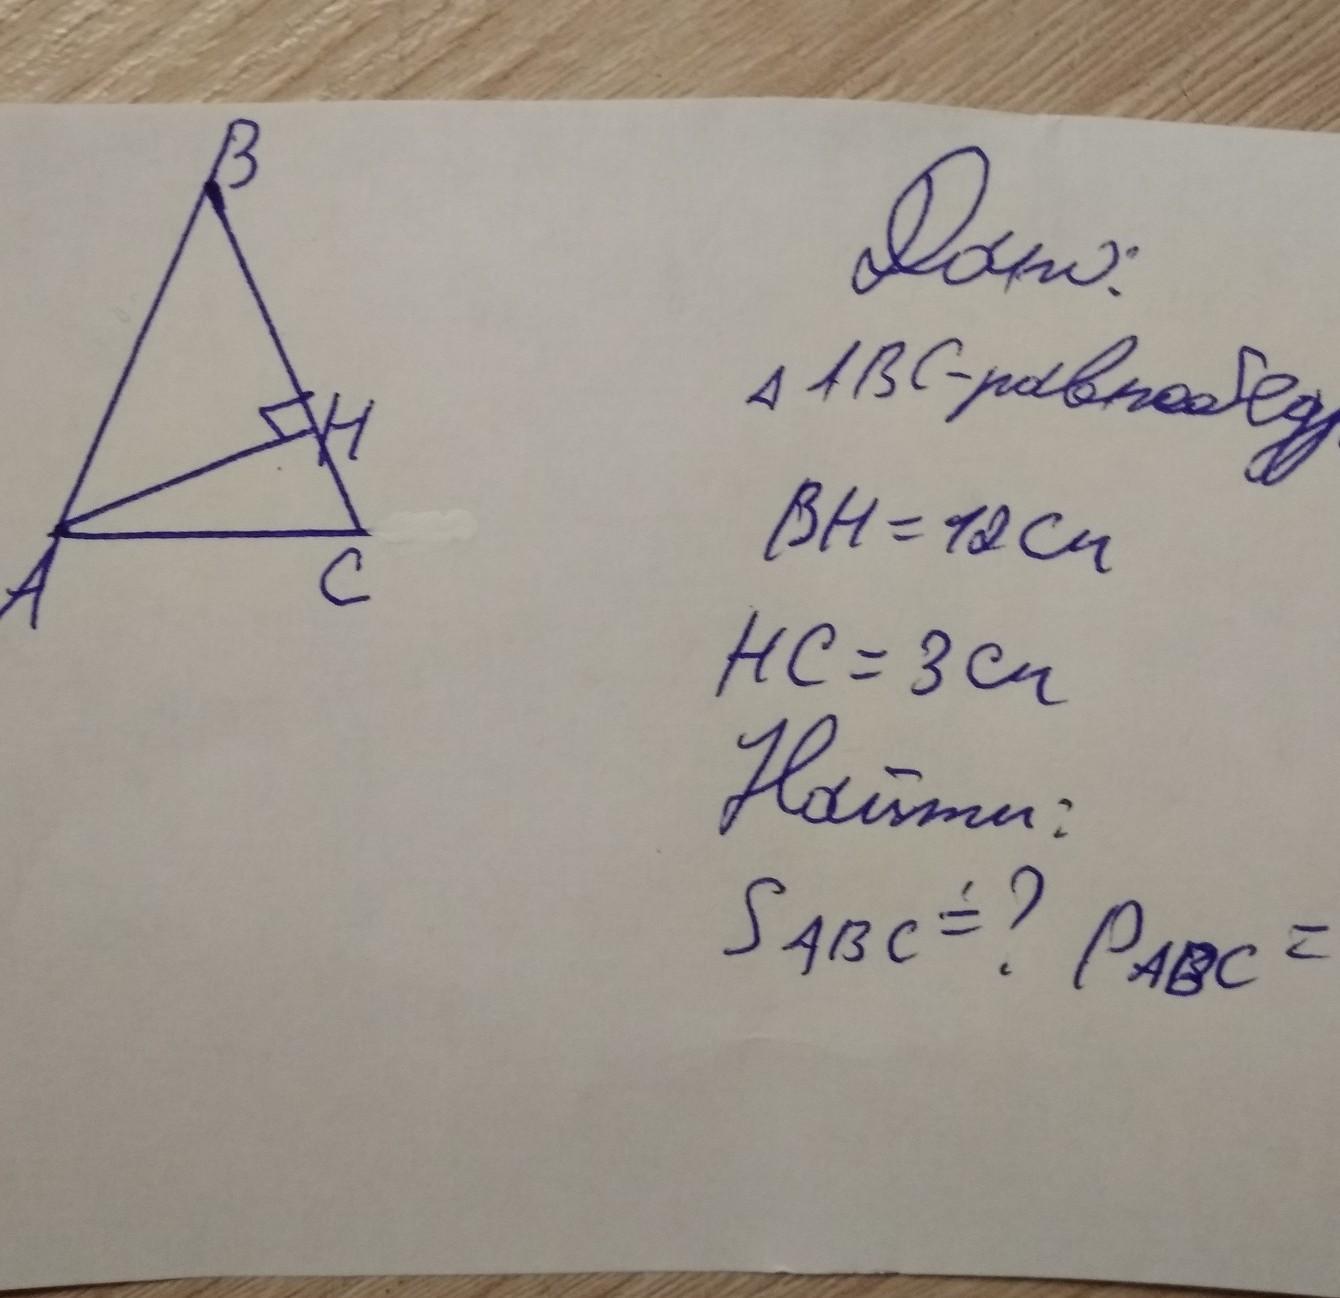 B
H
A
C
Дано:
△ ABC-равнобедр.
BH = 12 см
HC = 3 см
Найти:
S ABC = ? P ABC =